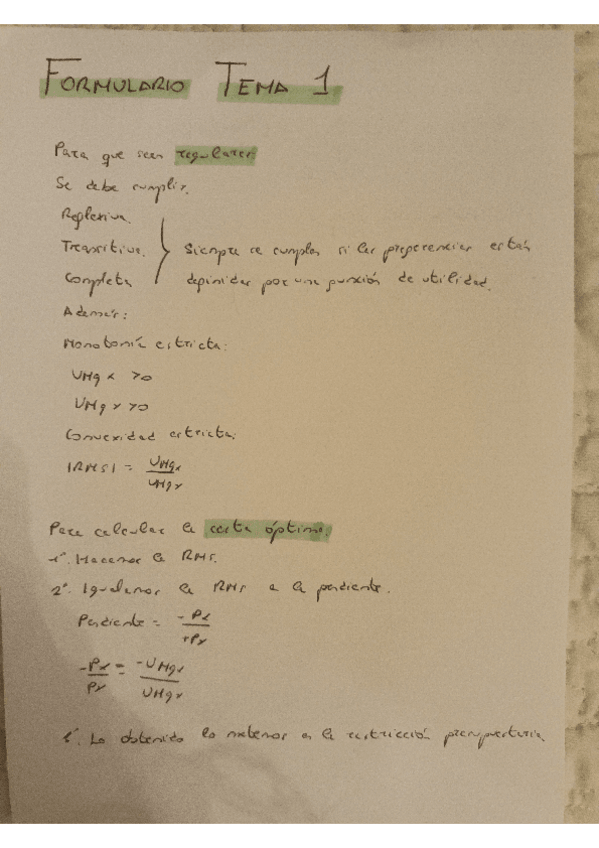 FORMULARIO TEMA 1
Para que sean regulares:
Se debe cumplir.
Reflexiva.
Transitiva. } Siempre se cumplen si las preferencias están
Completa definidas por una función de utilidad.
Además:
Monotonía estricta:
UMgx >0
UMgy >0
Convexidad estricta:
|RMS| = UMgx / UMgy
Para calcular la cesta óptima:
1º. Hacemos la RMS.
2º. Igualamos la RMS a la pendiente.
Pendiente = -Px / +Py
-Px / Py = -UMgx / UMgy
Lo obtenido lo metemos en la restricción presupuestaria